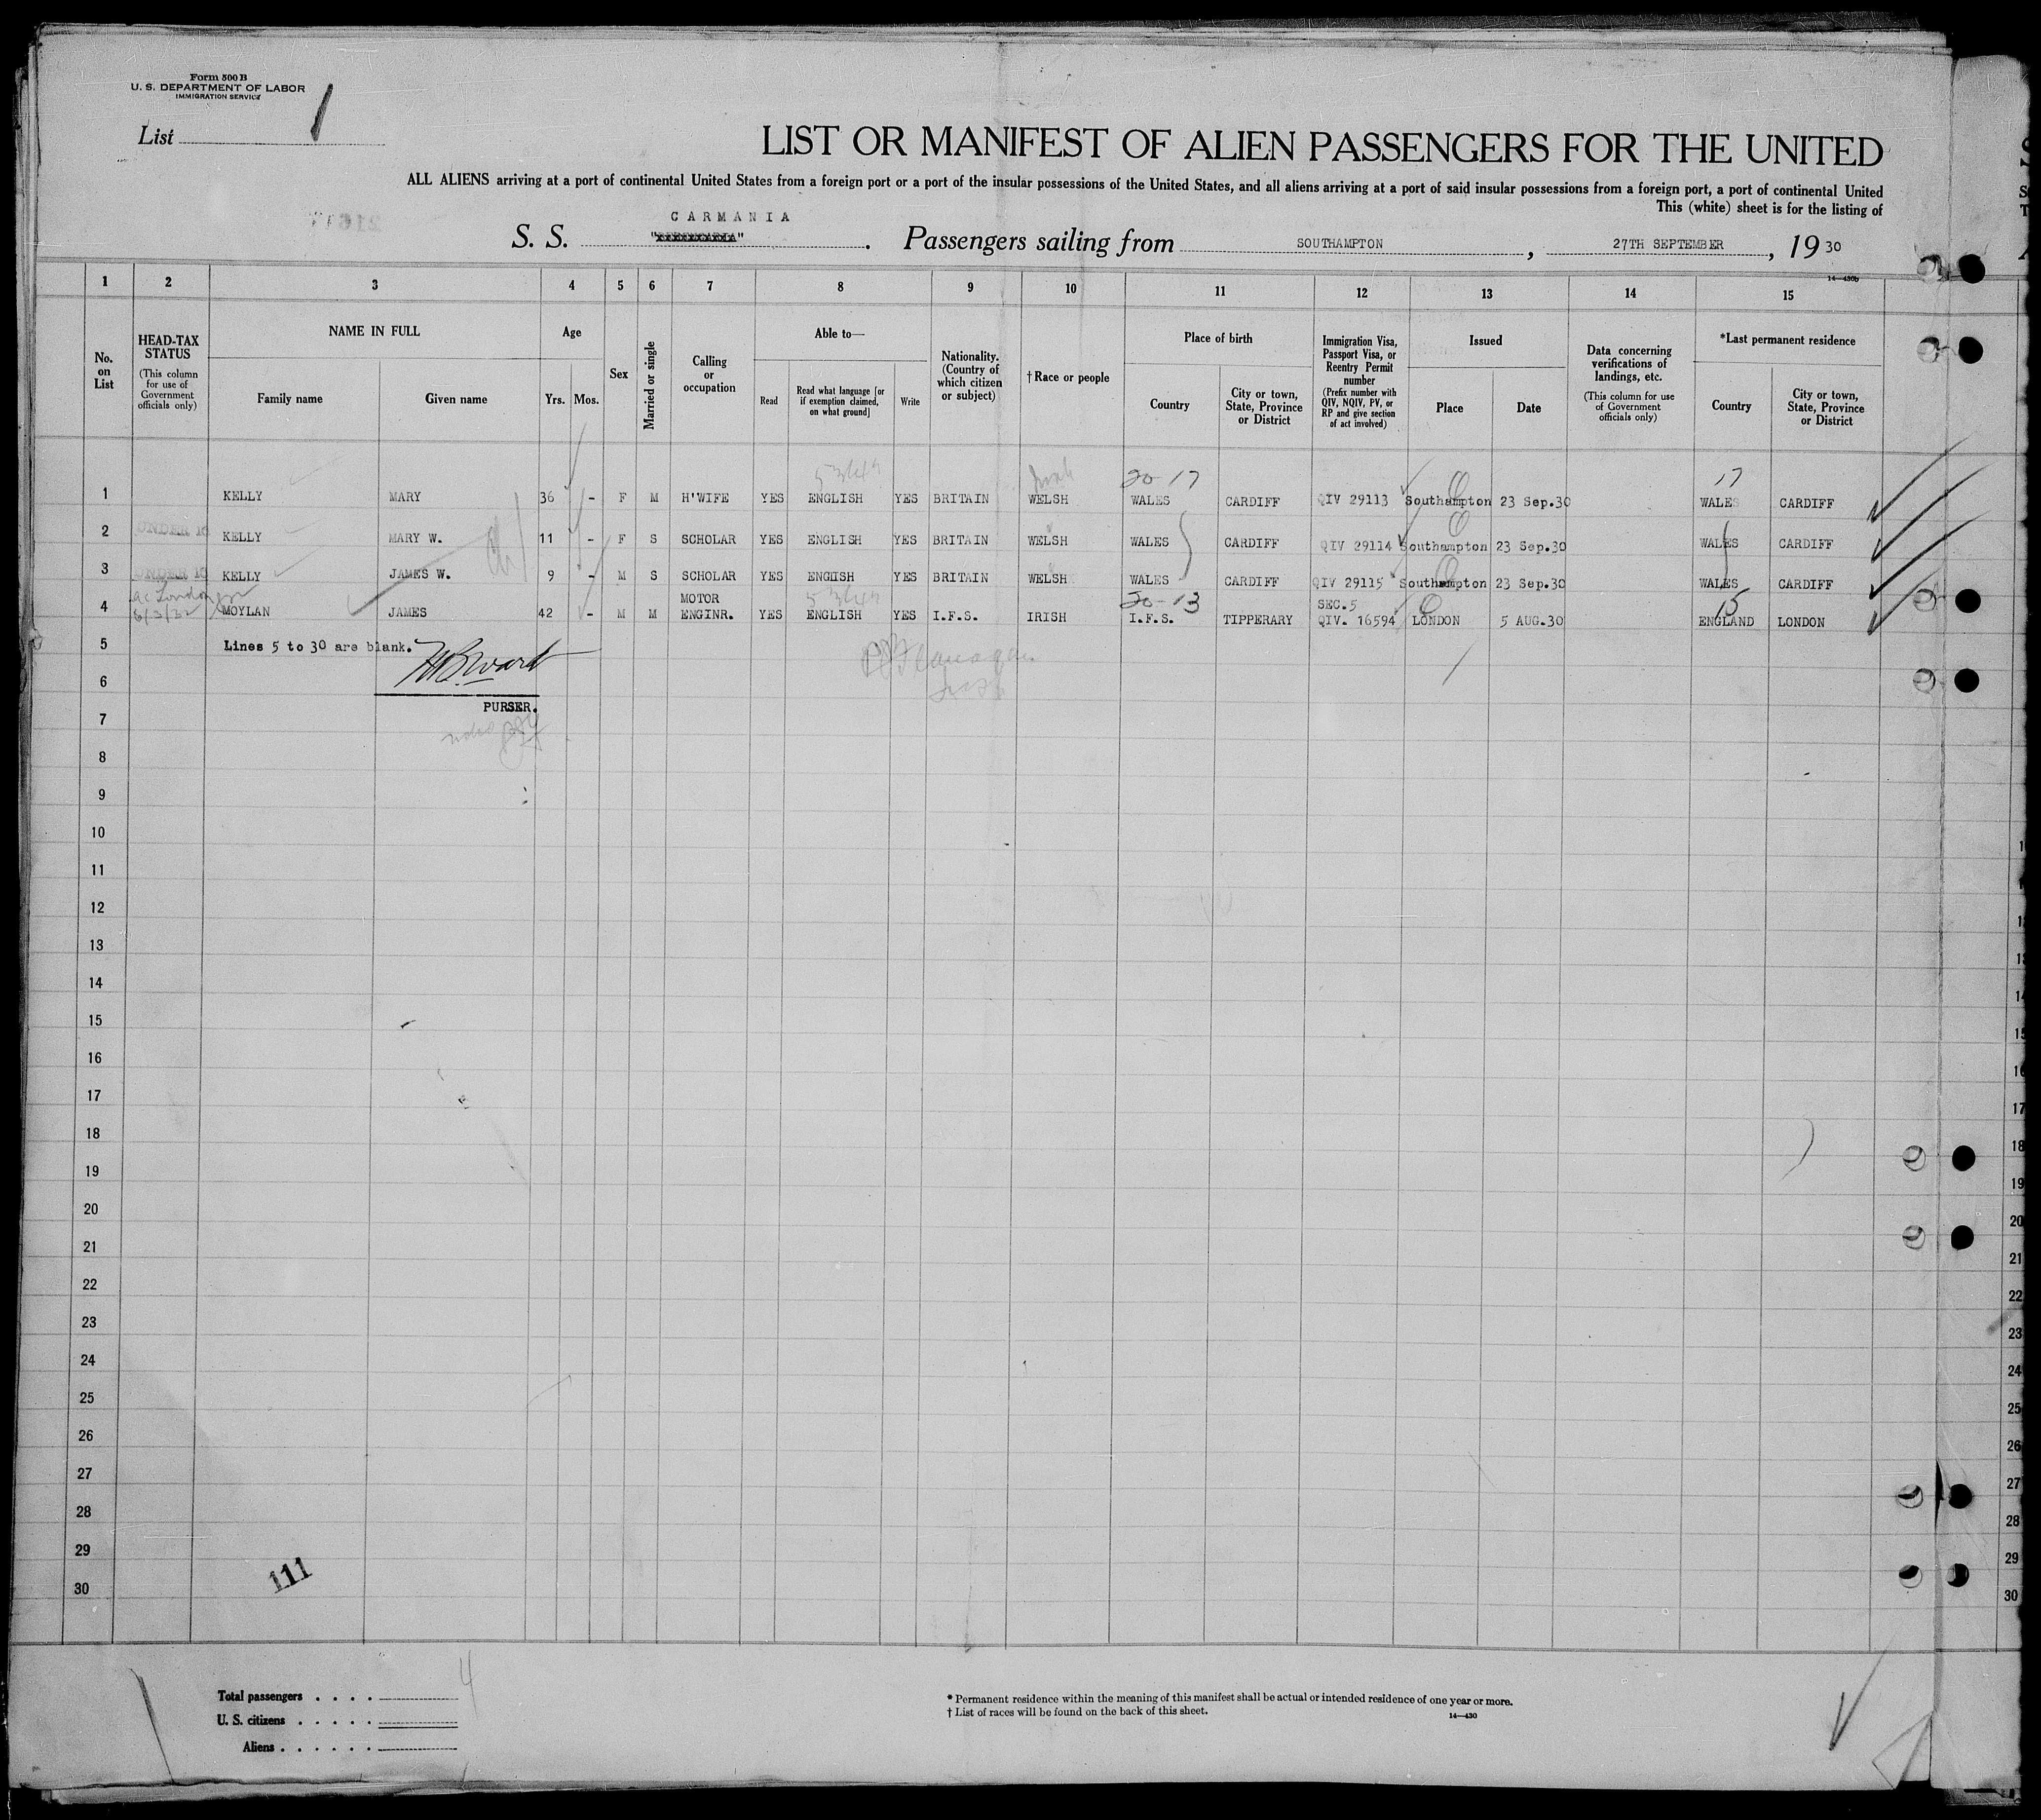 Form 500 B
U. S. DEPARTMENT OF LABOR
IMMIGRATION SERVICE
List 1
LIST OR MANIFEST OF ALIEN PASSENGERS FOR THE UNITED
ALL ALIENS arriving at a port of continental United States from a foreign port or a port of the insular possessions of the United States, and all aliens arriving at a port of said insular possessions from a foreign port, a port of continental United
This (white) sheet is for the listing of
CARMANIA
S. S. . Passengers sailing from SOUTHAMPTON , 27TH SEPTEMBER , 19 30
14—430b
1 2 3 4 5 6 7 8 9 10 11 12 13 14 15
No. on List
HEAD-TAX STATUS
(This column for use of Government officials only)
NAME IN FULL
Family name Given name
Age
Yrs. Mos.
Sex
Married or single
Calling or occupation
Able to—
Read Read what language [or if exemption claimed, on what ground] Write
Nationality. (Country of which citizen or subject)
†Race or people
Place of birth
Country City or town, State, Province or District
Immigration Visa, Passport Visa, or Reentry Permit number
(Prefix number with QIV, NQIV, PV, or RP and give section of act involved)
Issued
Place Date
Data concerning verifications of landings, etc.
(This column for use of Government officials only)
*Last permanent residence
Country City or town, State, Province or District
20-17 17
1 KELLY MARY 36 - F M H'WIFE YES ENGLISH YES BRITAIN WELSH WALES CARDIFF QIV 29113 Southampton 23 Sep.30 WALES CARDIFF
2 UNDER 16 KELLY MARY W. 11 - F S SCHOLAR YES ENGLISH YES BRITAIN WELSH WALES CARDIFF QIV 29114 Southampton 23 Sep.30 WALES CARDIFF
3 UNDER 16 KELLY JAMES W. 9 - M S SCHOLAR YES ENGIISH YES BRITAIN WELSH WALES CARDIFF QIV 29115 Southampton 23 Sep.30 WALES CARDIFF
London MOTOR 20-13 SEC.5 15
4 6/3/32 MOYLAN JAMES 42 - M M ENGINR. YES ENGLISH YES I.F.S. IRISH I.F.S. TIPPERARY QIV. 16594 LONDON 5 AUG.30 ENGLAND LONDON
5 Lines 5 to 30 are blank.
6
PURSER.
7
8
9
10
11
12
13
14
15
16
17
18
19
20
21
22
23
24
25
26
27
28
29
30
111
Total passengers . . . . 4
U. S. citizens . . . . .
Aliens . . . . . .
* Permanent residence within the meaning of this manifest shall be actual or intended residence of one year or more.
† List of races will be found on the back of this sheet.
14—430